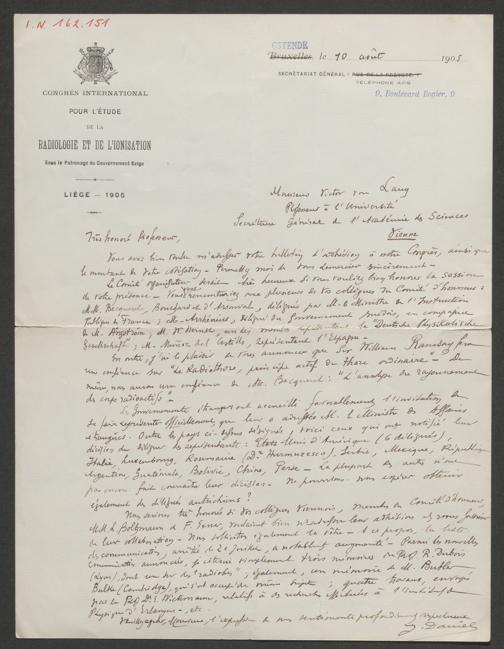 I.N 162.151
OSTENDE
Bruxelles, le 10 août 1905
SECRÉTARIAT GÉNÉRAL :
TÉLÉPHONE
9, Boulevard Rogier, 9
CONGRÈS INTERNATIONAL
POUR L'ÉTUDE
DE LA
RADIOLOGIE ET DE L'IONISATION
Sous le Patronage du Gouvernement Belge
LIÉGE - 1905
Monsieur Victor von Lang
Professeur à l'Université
Secrétaire Général de l'Académie des Sciences
Vienne
Très honoré Professeur,
Vous avez bien voulu m'adresser votre bulletin d'adhésion à notre Congrès, ainsi que
le montant de votre cotisation. - Permettez moi de vous remercier sincèrement -
Le Comité organisateur serait très heureux si vous vouliez bien honorer la session
de votre présence - Vous rencontreriez plusieurs de vos collègues du Comité d'honneur :
M.M. Becquerel, et d'Arsonval, délégués par M. le Ministre de l'Instruction
publique de France ; M. Arrhénius, délégué du Gouvernement suédois, en compagnie
de M. Angström ; M. représentant la Deutsche Physikalische
Gesellschaft ; M. Muñoz del Castillo, représentant l'Espagne -
En outre, j'ai le plaisir de vous annoncer que Sir William Ramsay fera
une conférence sur "Le Radiothore, principe actif du thore ordinaire" - De
même, nous aurons une conférence de M. Becquerel : "L'analyse du rayonnement
des corps radioactifs -
Les Gouvernements étrangers ont accueilli favorablement l'invitation de
se faire représenter officiellement que leur a adressée M. le Ministre des Affaires
étrangères - Outre les pays ci-dessus désignés, voici ceux qui ont notifié leur
décision de déléguer des représentants : États-Unis d'Amérique (6 délégués),
Italie, Luxembourg, Roumanie (Dr Hurmuzescu), Serbie, Mexique, République
Argentine, Guatémala, Bolivie, Chine, Perse - La plupart des autres n'ont
pas encore fait connaître leur décision - Ne pourrions-nous espérer obtenir
également des délégués autrichiens ?
Nous serions très honorés si vos collègues Viennois, membres du Comité d'honneur,
M.M. L. Boltzmann & F. Exner, voulaient bien
leur collaboration - Nous sollicitons également la vôtre - A ce propos, la liste
des communications, arrêtée le 20 Juillet, a notablement augmenté - Parmi les nouvelles
communications annoncées, je citerai simplement trois mémoires du Prof. R. Dubois
(Lyon), dont un sur les "radiobes" ; également, un mémoire de M. Butler
Burke (Cambridge), qui s'est occupé du même sujet ; quatre travaux, envoyés
par le Prof. Dr. E. Wiedemann, relatifs à des recherches effectuées à l'Institut de
Physique d'Erlangen - etc.
Veuillez agréer, Monsieur, l'expression de mes sentiments profondément respectueux
J. Daniel